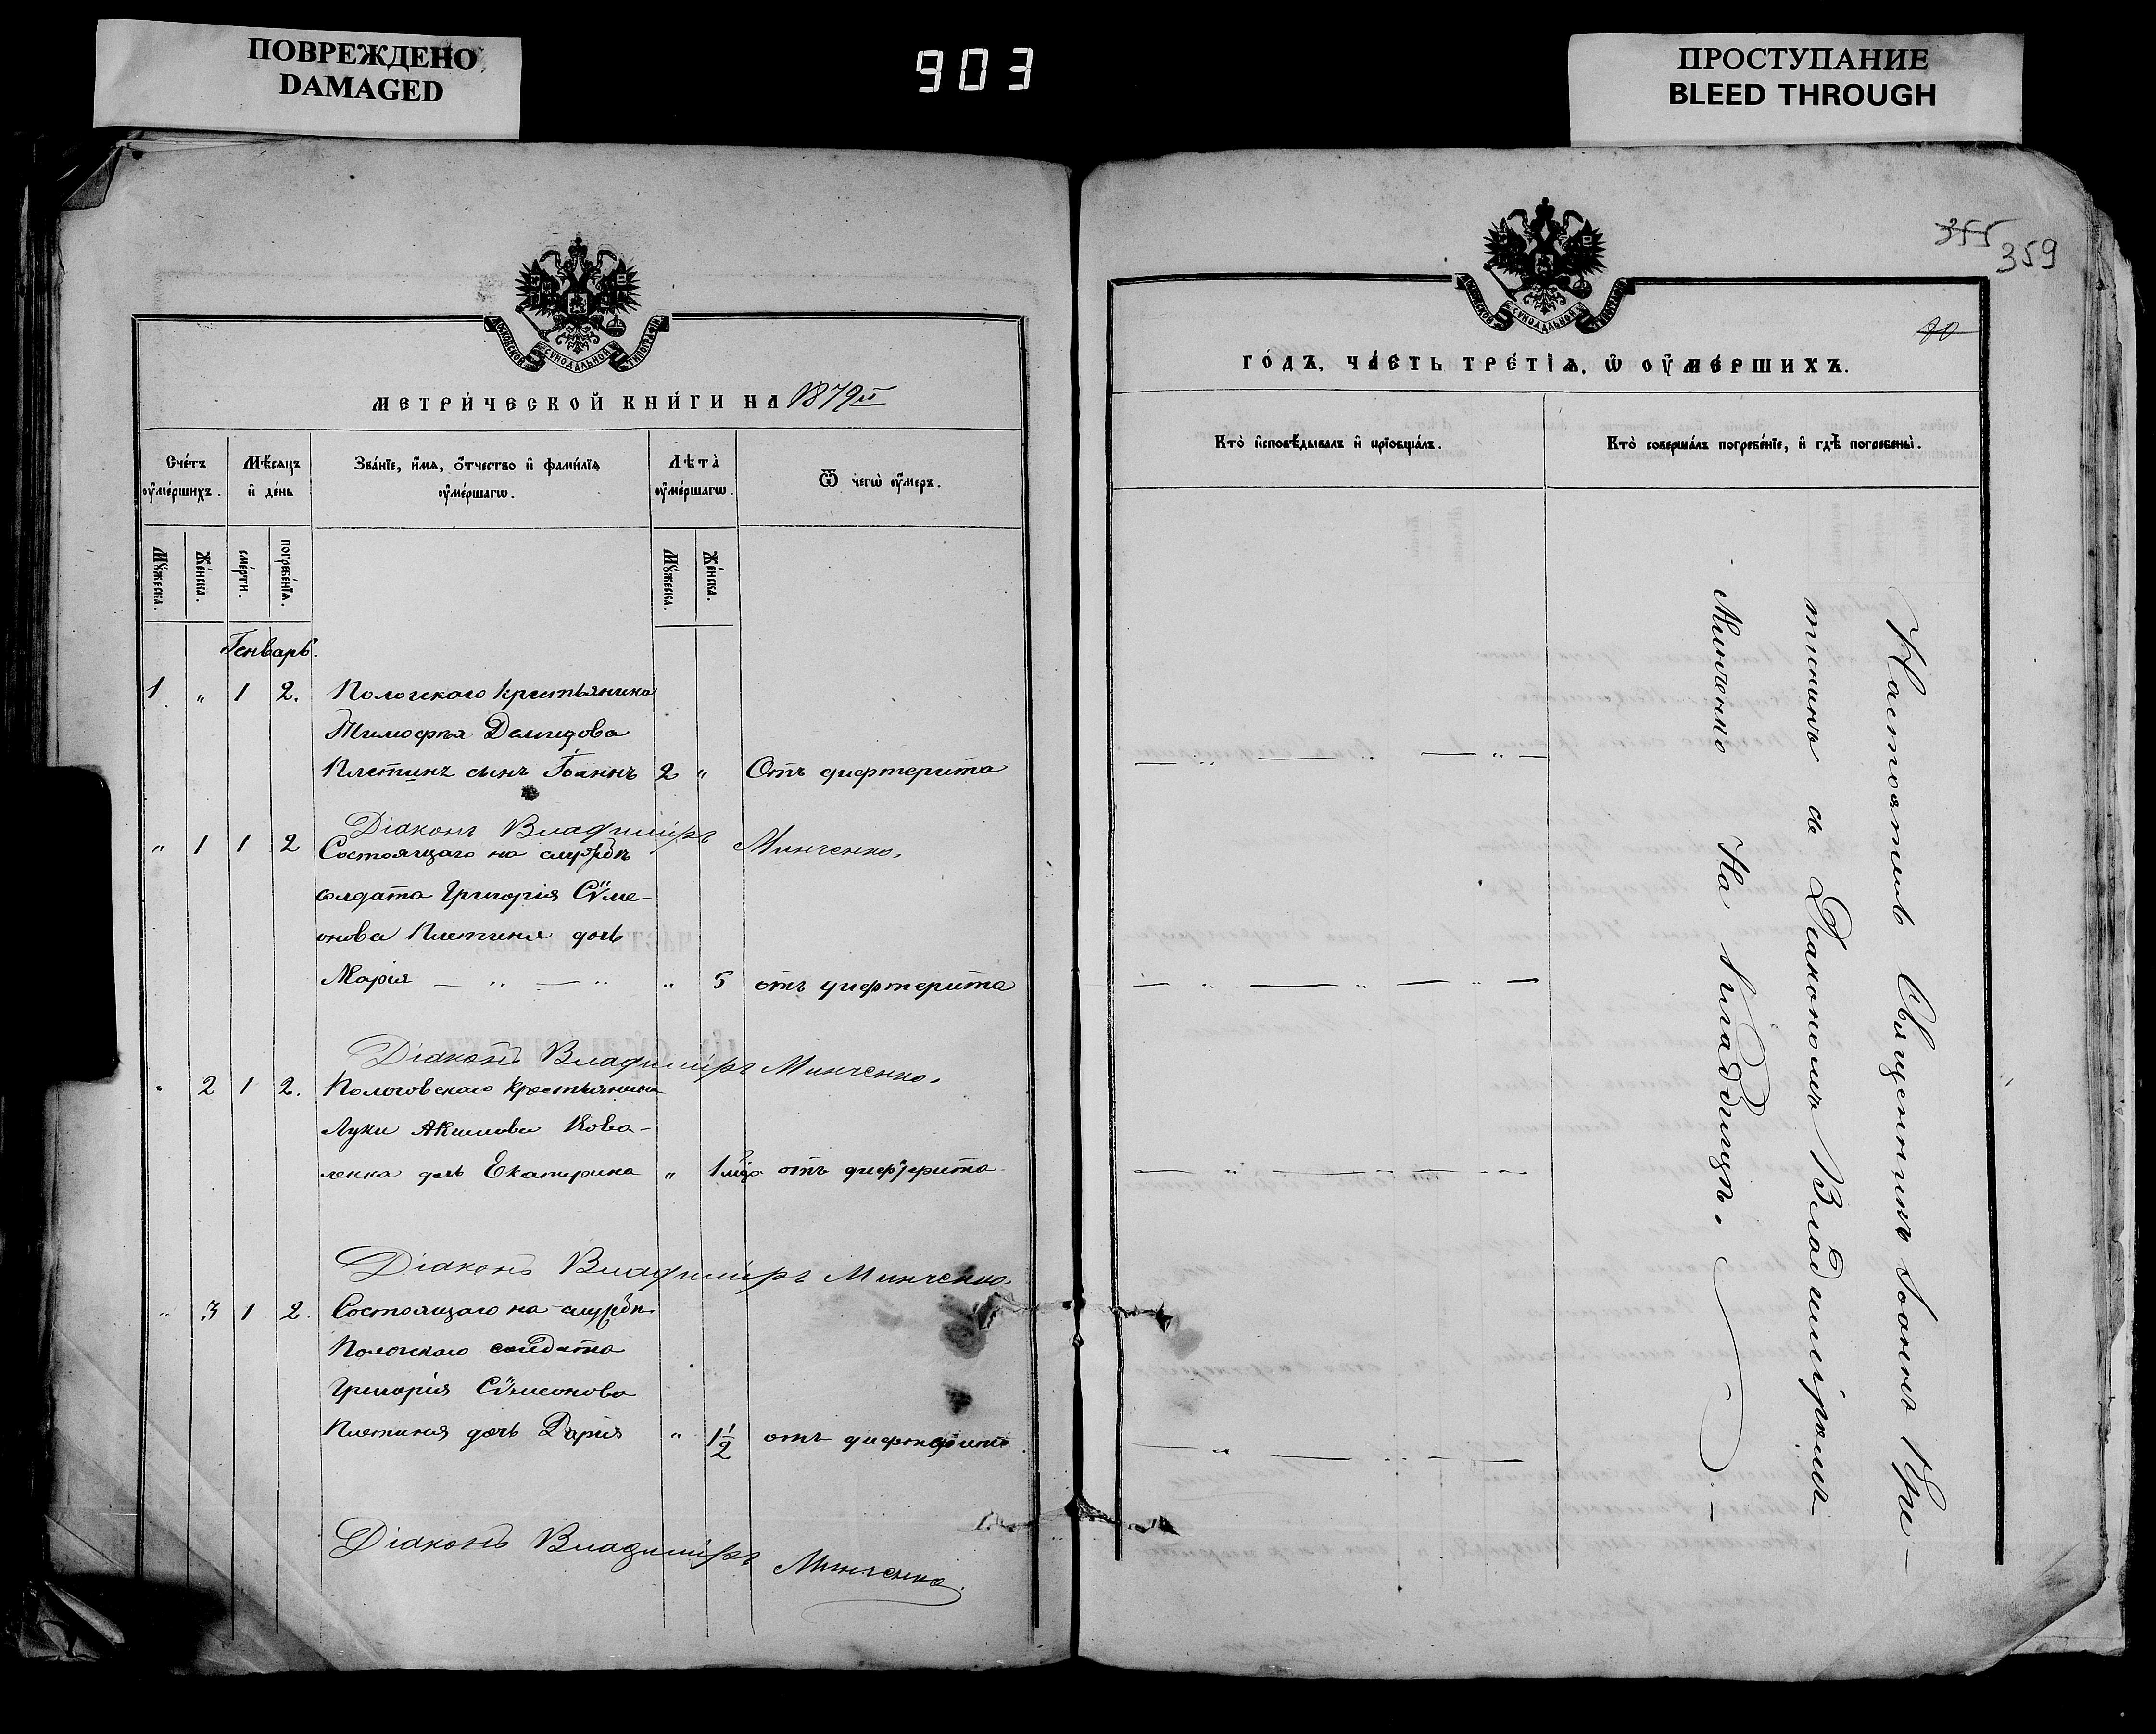 ПОВРЕЖДЕНО
DAMAGED
903
ПРОСТУПАНИЕ
BLEED THROUGH
МОСКОВСКОЙ СѴНОДАЛЬНОЙ ТИПОГРАФІИ
МЕТРИ́ЧЕСКОЙ КНИ́ГИ НА 1879й
Сче́тъ ᲂу҆ме́ршихъ.
Мѣ́сяцъ и҆ де́нь
Зва́нїе, и҆́мя, ѻ҆́тчество и҆ фами́лїя ᲂу҆ме́ршагѡ.
Лѣта̀ ᲂу҆ме́ршагѡ.
Ѿ чегѡ̀ ᲂу҆́меръ.
Мꙋ́жеска.
Же́нска.
сме́рти.
погребе́нїѧ.
Мꙋ́жеска.
Же́нска.
Генварь.
1 " 1 2. Пологскаго крестьянина
Тимофея Демидова
Плетинъ сынъ Іоаннъ 2 " Отъ дифтерита
Діаконъ Владиміръ Минченко.
" 1 1 2 Состоящаго на службѣ
солдата Григорія Сѷме-
онова Плетиня дочь
Марія — " — " " 5 отъ дифтерита
Діаконъ Владиміръ Минченко.
" 2 1 2. Пологовскаго крестьянина
Луки Акимова Кова-
ленка дочь Екатерина " 1 отъ дифтерита
Діаконъ Владиміръ Минченко.
" 3 1 2. Состоящаго на службѣ
Пологскаго солдата
Григорія Сѷмеонова
Плетиня дочь Дарія " 1½ отъ дифтерита
Діаконъ Владиміръ Минченко.
355 359
МОСКОВСКОЙ СѴНОДАЛЬНОЙ ТИПОГРАФІИ
ГО́ДЪ, ЧА́СТЬ ТРЕ́ТЇѦ, Ѡ҆ ОУ҆МЕ́РШИХЪ.
Кто̀ и҆сповѣ́дывалъ и҆ прїобща́лъ.
Кто̀ соверша́лъ погребе́нїе, и҆ гдѣ̀ погребены̀.
Настоятель Священникъ Іоаннъ При-
тчинъ съ Діакономъ Владиміромъ
Минченко На кладбищѣ. —